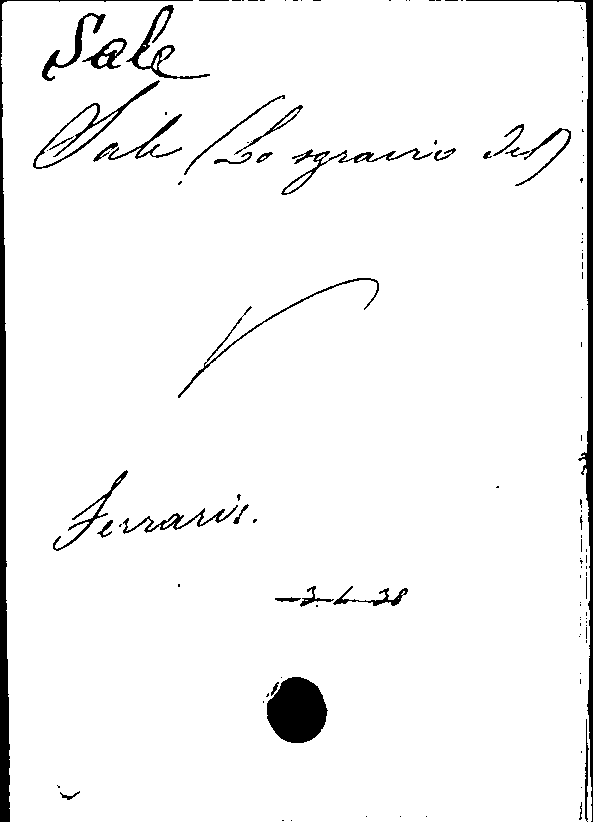 Sale
Sale (Lo sgravio del)
Ferraris.